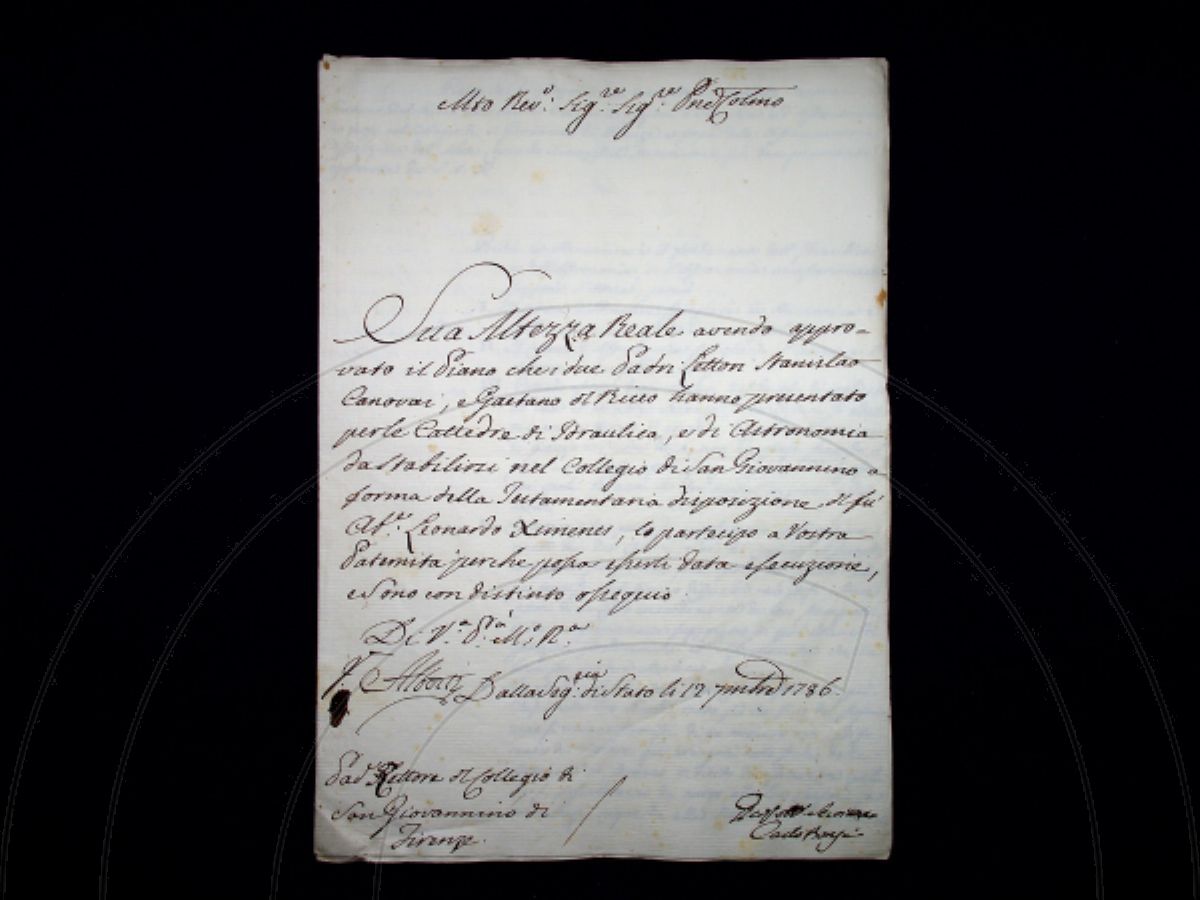 Mto Rev.º Sig.re Sig.re Pne Colmo
Sua Altezza Reale avendo appro-
vato il Piano che i due Padri Lettori Stanislao
Canovai, e Gaetano del Ricco hanno presentato
per le Cattedre di Idraulica, e di Astronomia
da stabilirsi nel Collegio di San Giovannino a
forma della Testamentaria disposizione del fù
Ab.e Leonardo Ximenes, lo partecipo a Vostra
Paternità perche possa esserli data esecuzione,
e sono con distinto ossequio
Di V.a P.tà M.o R.a
V. Alberti Dalla Seg.ria di Stato li 12 7mbre 1786.
Pad.e Rettore del Collegio di
San Giovannino di
Firenze.
Carlo Bonsi